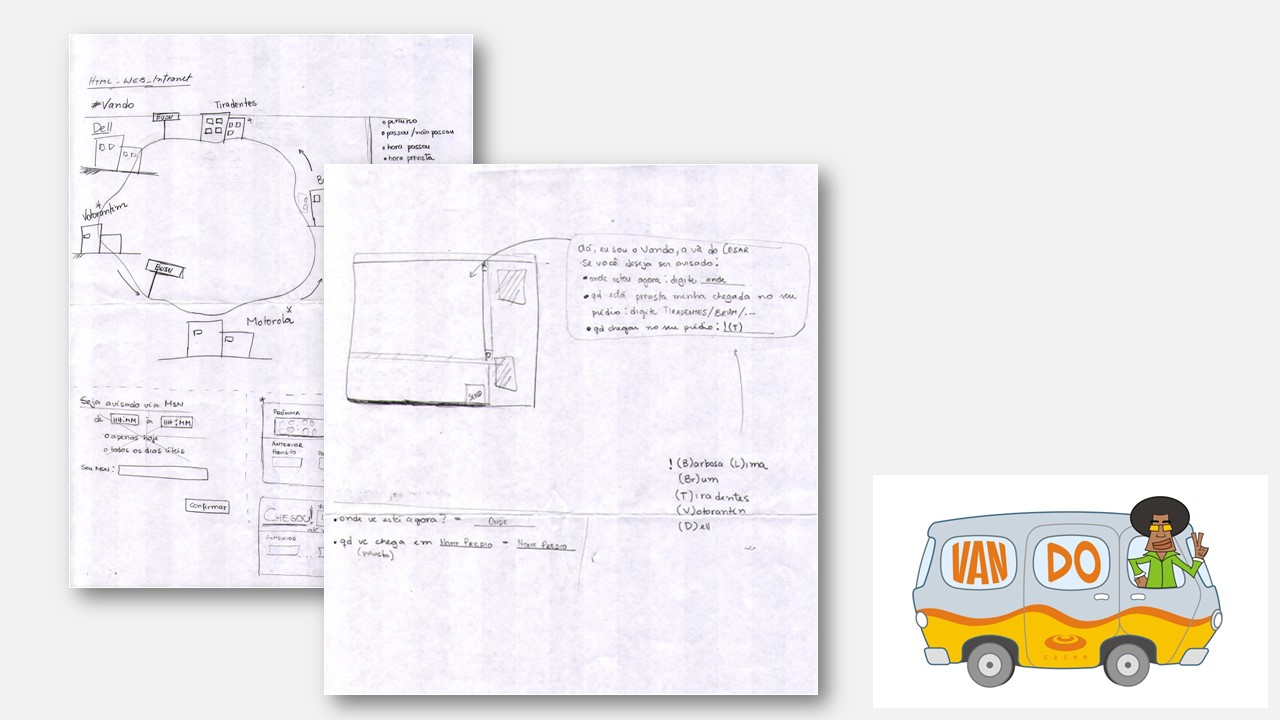 HTML - WEB - Intranet
#Vando
Tiradentes
BUSU
Dell
percurso
passou/não passou
hora passou
hora prevista
Votorantim
BUSU
Motorola
Seja avisado via MSN
de HH:MM à HH:MM
apenas hoje
todos os dias úteis
Seu MSN:
Confirmar
PRÓXIMA
ANTERIOR
PREVISTO
CHEGOU
ANTERIOR
Oi, eu sou o Vando, a vã do CESAR
Se você deseja ser avisado:
onde estou agora: digite onde
qd está prevista minha chegada no seu
prédio: digite TIRADENTES/BRUM/...
qd chegar no seu prédio: !(T)
SEND
! (B)arbosa (L)ima
(Br)um
(T)iradentes
(V)otorantin
(D)ell
onde vc está agora? = ONDE
qd vc chega em NOME PRÉDIO - NOME PRÉDIO
(previsto)
VAN DO
C.E.S.A.R